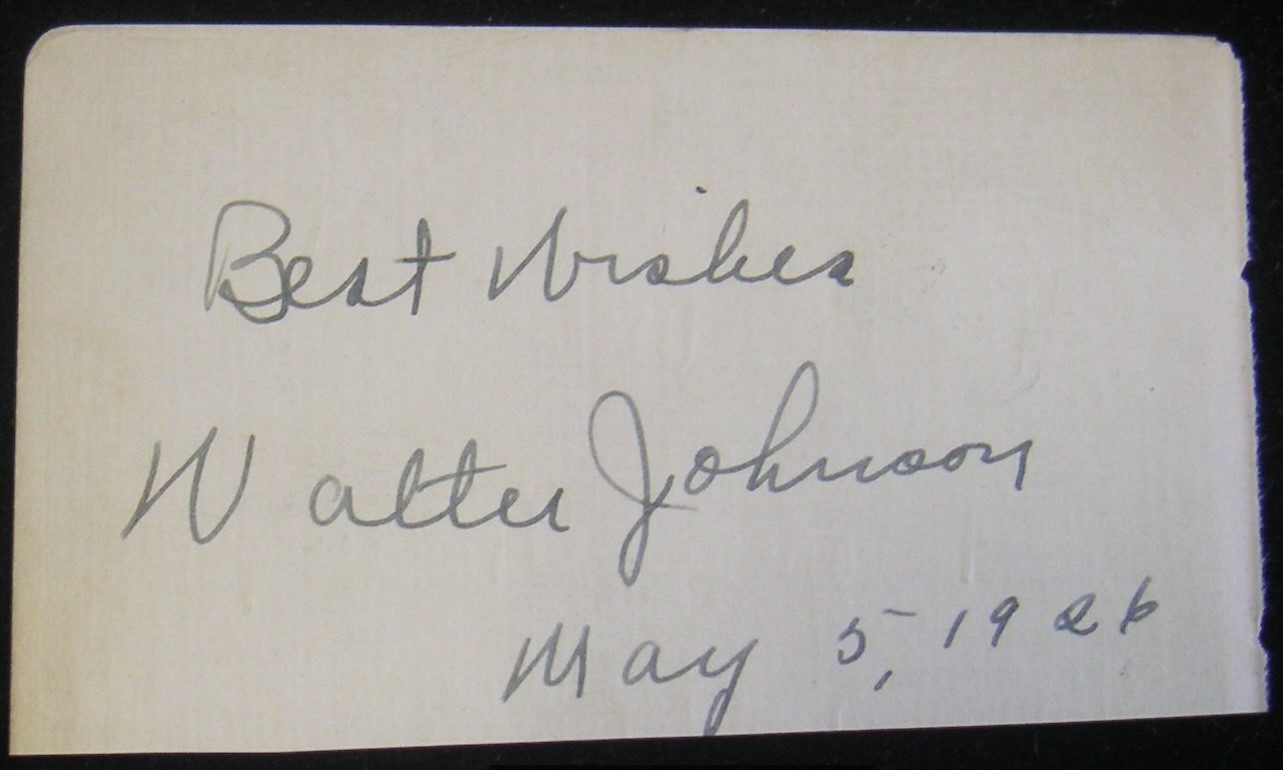 Best Wishes
Walter Johnson
May 5, 1926